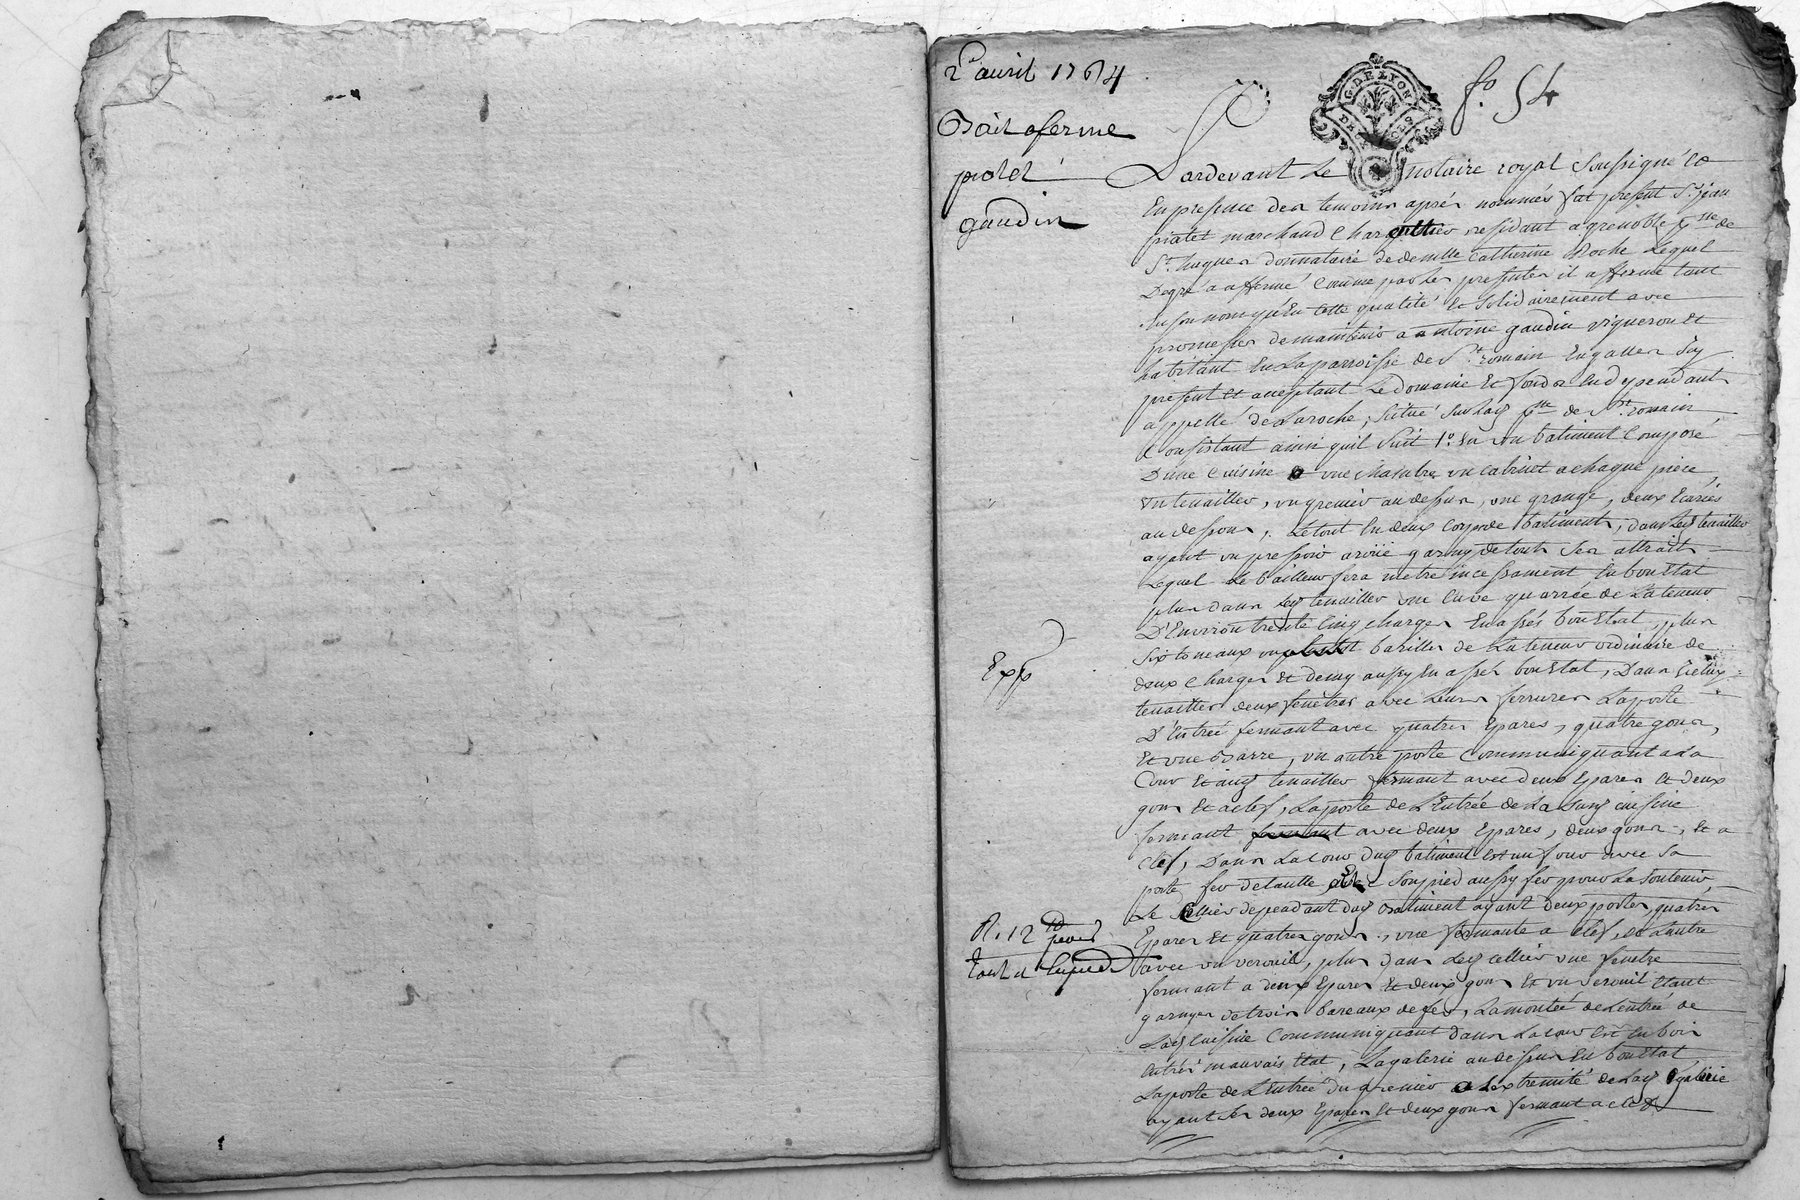 2e avril 1764
Bail a ferme
piolet
gaudin
fo. 54
G. DE LYON
Pardevant Le notaire royal soussigné et
En presence des temoins aprés nommés fut présent Sr. jean
piolet marchand résidant a grenoble psse de
St. hugues donnataire de demlle Catherine Roche Lequel
De gré a affermé comme par les presentes il afferme tant
En son nom qu'En cette qualité et solidairement avec
promesses de maintenir a antoine gaudin vigneron et
habitant En La parroisse de St. romain En gallen Icy
présent et acceptant Le domaine Et fonds En dependant
appellé de La roche, scitué sur Lad. psse de St. romain
Consistant ainsi quil suit 1o. En un batiment Composé
D'une Cuisine une chambre un cabinet a chaque piece
un tenailler, un grenier au dessus, une grange, deux Ecuries
au dessous, Le tout En deux corps de batiment, dans Led. tenailler
ayant un pressoir garny de tous ses attraits
Lequel Le bailleur fera metre incessament En bon Etat
plus dans Led. tenailler une Cuve quarrée de La teneur
D'Environ trente Cinq charges En assés bon Etat, plus
Six toneaux barilles de La teneur ordinaire de
deux Charges Et demy aussy En assés bon Etat, Dans
tenailler deux fenetres avec Leurs ferrures La porte
D'Entrée fermant avec quatres Epares, quatre gons,
Et une Barre, un autre porte Communiquant a La
Cour Et aud. tenailler fermant avec deux Epares et deux
gons Et a clef, La porte de L'Entrée de La susd. cuisine
fermant avec deux Epares, deux gons, Et a
Clef, Dans La cour dud. batiment est un four avec sa
porte fer de taulle son pied aussy fer pour La soutenir,
Le Cellier dependant dud. Batiment ayant deux portes, quatres
Epares Et quatres gons, une fermante a clef, et L'autre
avec un verouil, plus dans Led. cellier une fenetre
fermant a deux Epares Et deux gons Et un verouil Etant
garnyes de trois bareaux de fer, La montée de L'entrée de
Lad. cuisine Communiquant dans La cour est En bon
mauvais Etat, La galerie au dessus En bon Etat
La porte de L'Entrée du grenier a L'extremité de Lad. galerie
ayant ses deux Epares Et deux gons fermant a clef
Exp
R. 12